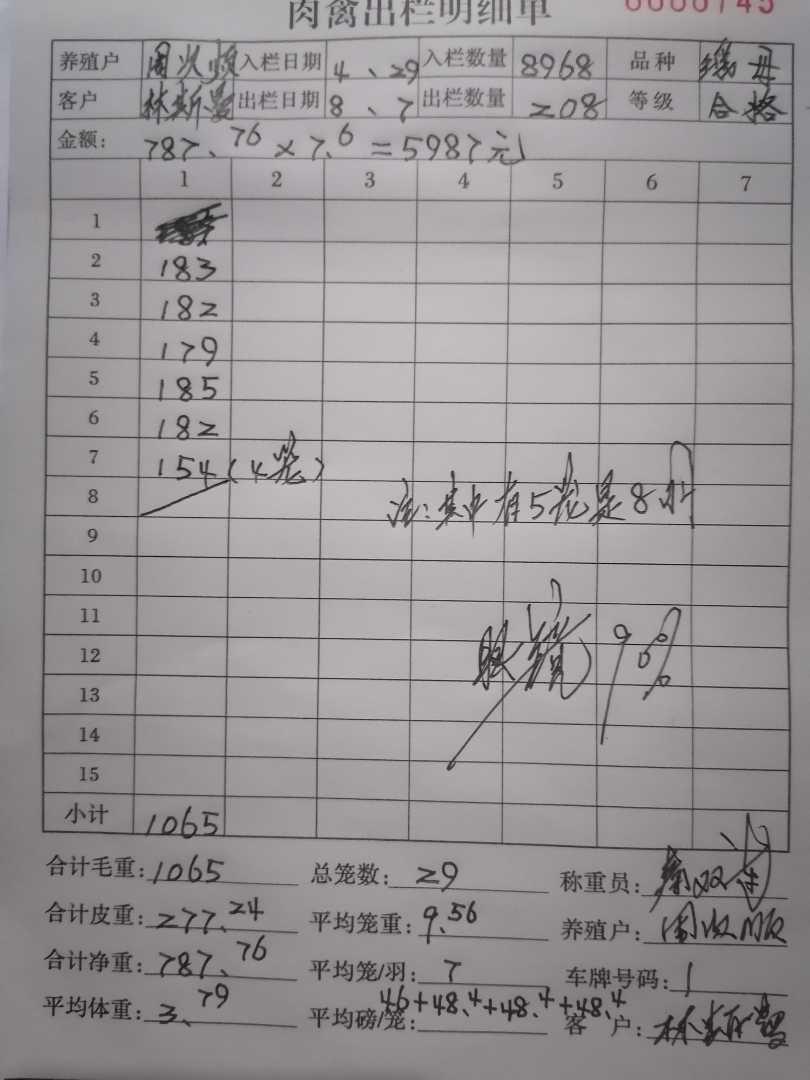 肉禽出栏明细单 0000745
养殖户 入栏日期 4、29 入栏数量 8968 品种
客户 林斯 出栏日期 8、7 出栏数量 208 等级 合格
金额: 787、76 × 7、6 = 5987元
1 2 3 4 5 6 7
1
2 183
3 182
4 179
5 185
6 182
7 154 (4笼)
8 注:其中有5笼是8只
9
10
11
12 9%
13
14
15
小计 1065
合计毛重: 1065 总笼数: 29 称重员:
合计皮重: 277、24 平均笼重: 9、56 养殖户:
合计净重: 787、76 平均笼/羽: 7 车牌号码: 1
平均体重: 3、79 平均磅/笼: 46+48、4+48、4+48、4 客户: 林